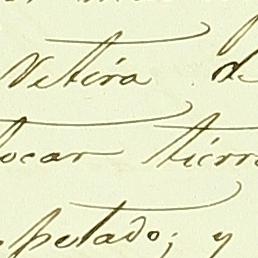 Vetira de
tocar tierra
petado; y